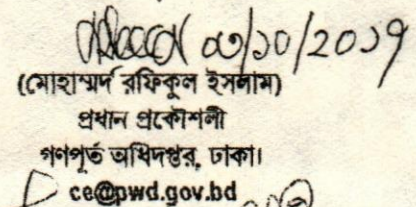 ০৩/১০/২০১৭
(মোহাম্মদ রফিকুল ইসলাম)
প্রধান প্রকৌশলী
গণপূর্ত অধিদপ্তর, ঢাকা।
ce@pwd.gov.bd